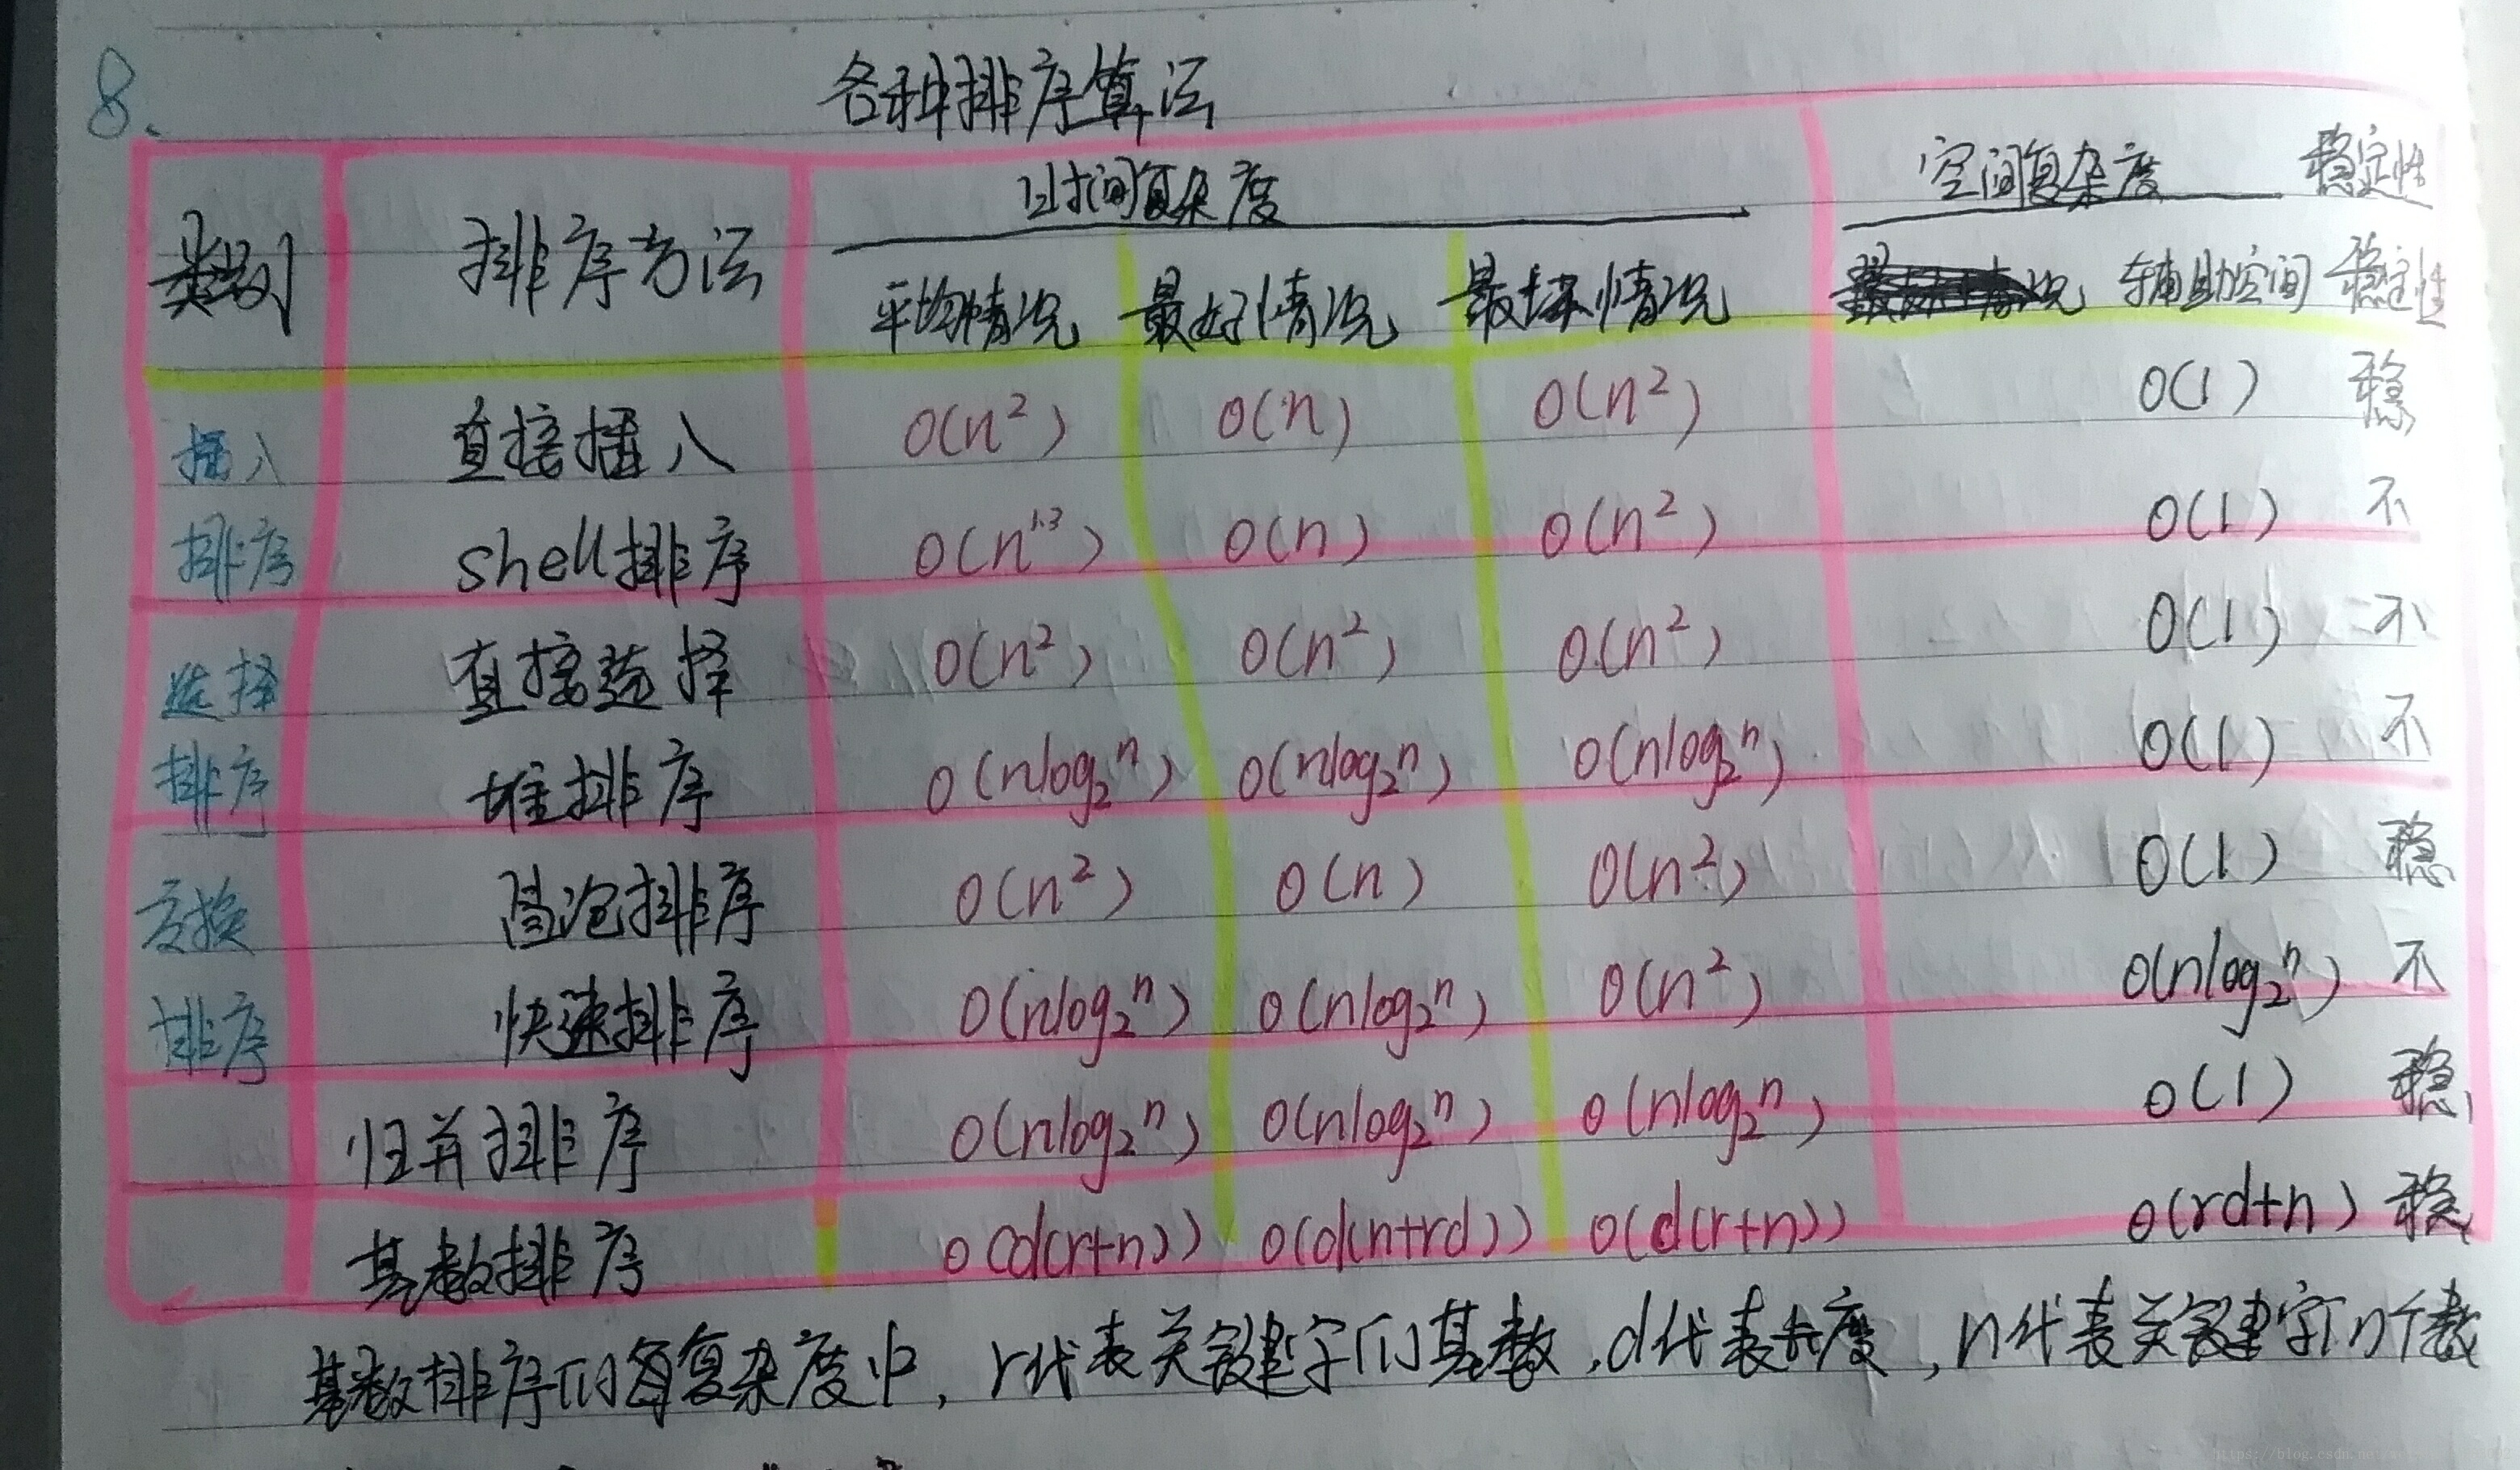 8.
各种排序算法
类别 排序方法 时间复杂度 空间复杂度 稳定性
平均情况 最好情况 最坏情况 辅助空间 稳定性
插入 直接插入 O(n²) O(n) O(n²) O(1) 稳
排序 shell排序 O(n^1.3) O(n) O(n²) O(1) 不
选择 直接选择 O(n²) O(n²) O(n²) O(1) 不
排序 堆排序 O(nlog₂ⁿ) O(nlog₂ⁿ) O(nlog₂ⁿ) O(1) 不
交换 冒泡排序 O(n²) O(n) O(n²) O(1) 稳
排序 快速排序 O(nlog₂ⁿ) O(nlog₂ⁿ) O(n²) O(nlog₂ⁿ) 不
归并排序 O(nlog₂ⁿ) O(nlog₂ⁿ) O(nlog₂ⁿ) O(1) 稳
基数排序 O(d(r+n)) O(d(n+rd)) O(d(r+n)) O(rd+n) 稳
基数排序的复杂度中,r代表关键字的基数,d代表长度,n代表关键字的个数